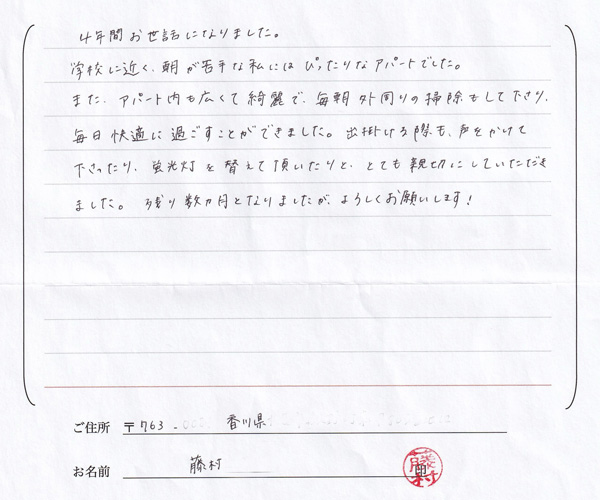 4年間お世話になりました。
学校に近く、朝が苦手な私にはぴったりなアパートでした。
また、アパート内も広くて綺麗で、毎朝外回りの掃除もして下さり、
毎日快適に過ごすことができました。出掛ける際も、声をかけて
下さったり、蛍光灯を替えて頂いたりと、とても親切にしていただき
ました。残り数ヵ月となりましたが、よろしくお願いします!
ご住所 〒763- 香川県
お名前 藤村 印
藤村